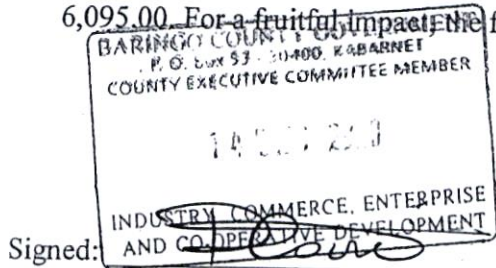 6,095.00. For a fruitful impact, the f
BARINGO COUNTY GOVERNMENT
P. O. Box 53 - 30400. KABARNET
COUNTY EXECUTIVE COMMITTEE MEMBER
14
INDUSTRY, COMMERCE, ENTERPRISE
AND CO-OPERATIVE DEVELOPMENT
Signed: